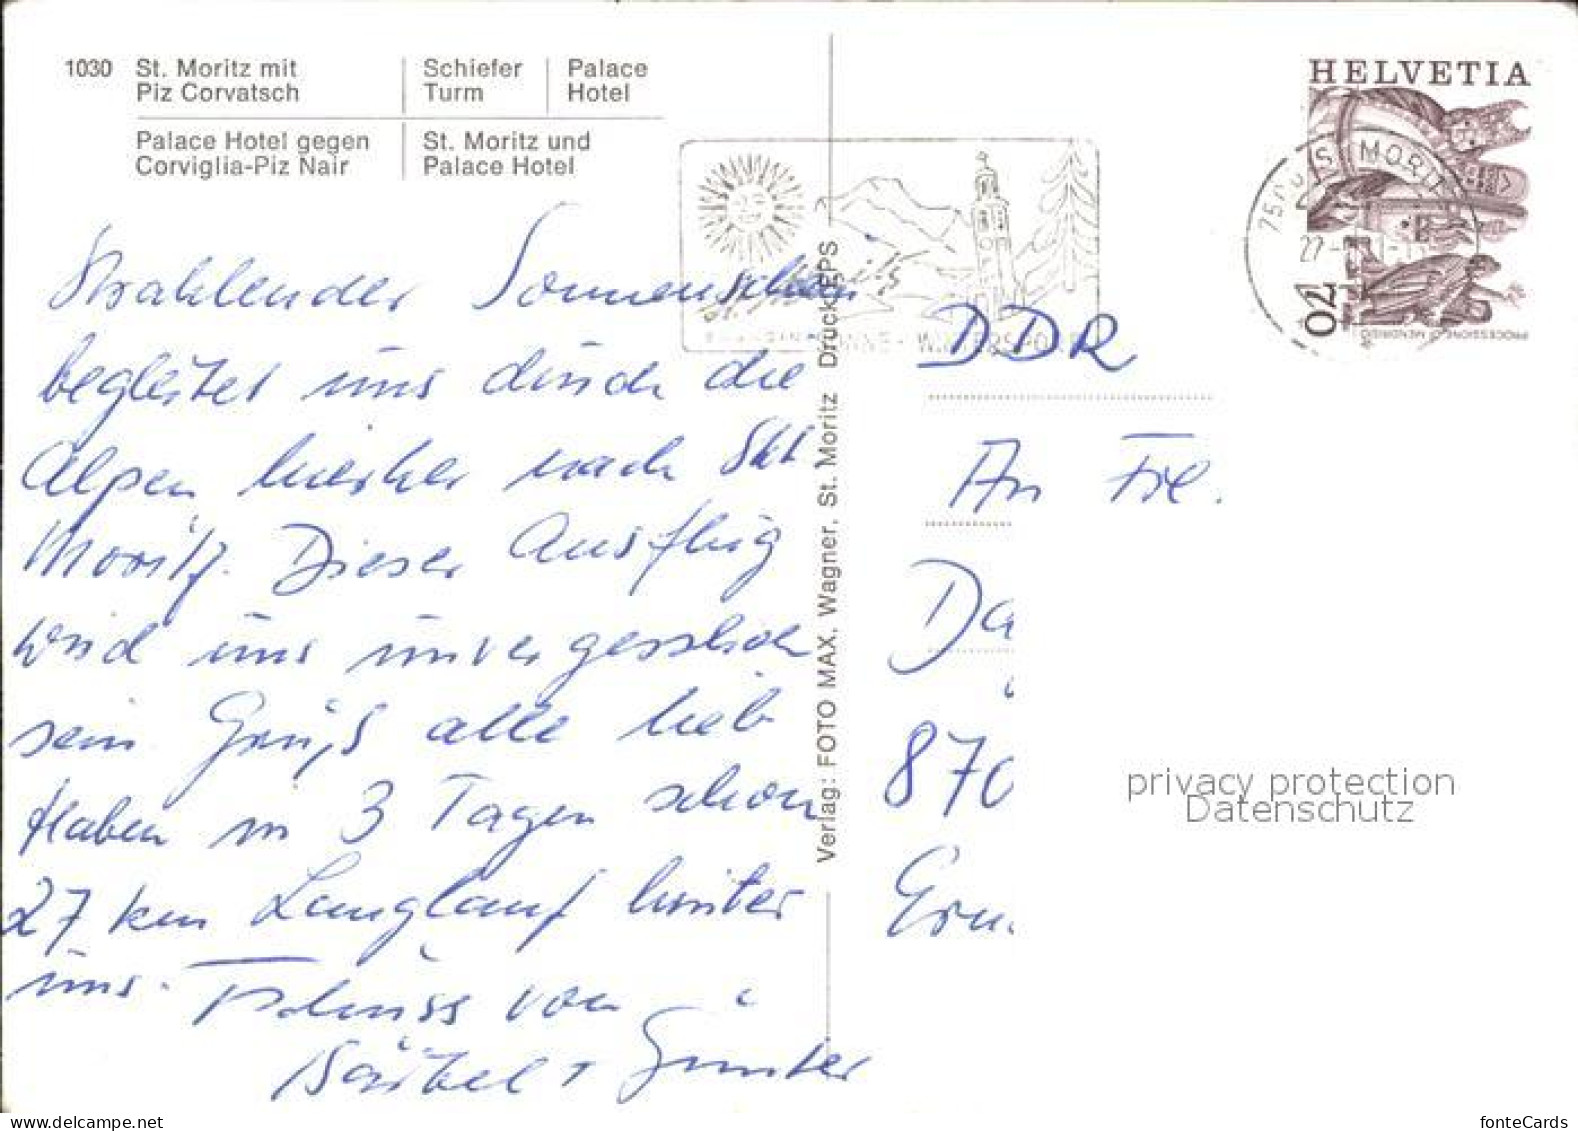 1030 St. Moritz mit Piz Corvatsch
Schiefer Turm
Palace Hotel
Palace Hotel gegen Corviglia-Piz Nair
St. Moritz und Palace Hotel
Strahlender Sonnenschein
begleitet uns durch die
Alpen hierher nach Skt
Moritz. Dieser Ausflug
wird uns unvergesslich
sein Grüß alle lieb
Haben in 3 Tagen schon
27 km Langlauf hinter
uns. Tschüss von
Bärbel + Günter
Verlag: FOTO MAX, Wagner, St. Moritz Druck: EPS
HELVETIA
70
PROCESSIONE DI MENDRISIO
MORIT
27
DDR
An Frl.
Da
870
privacy protection
Datenschutz
fonteCards